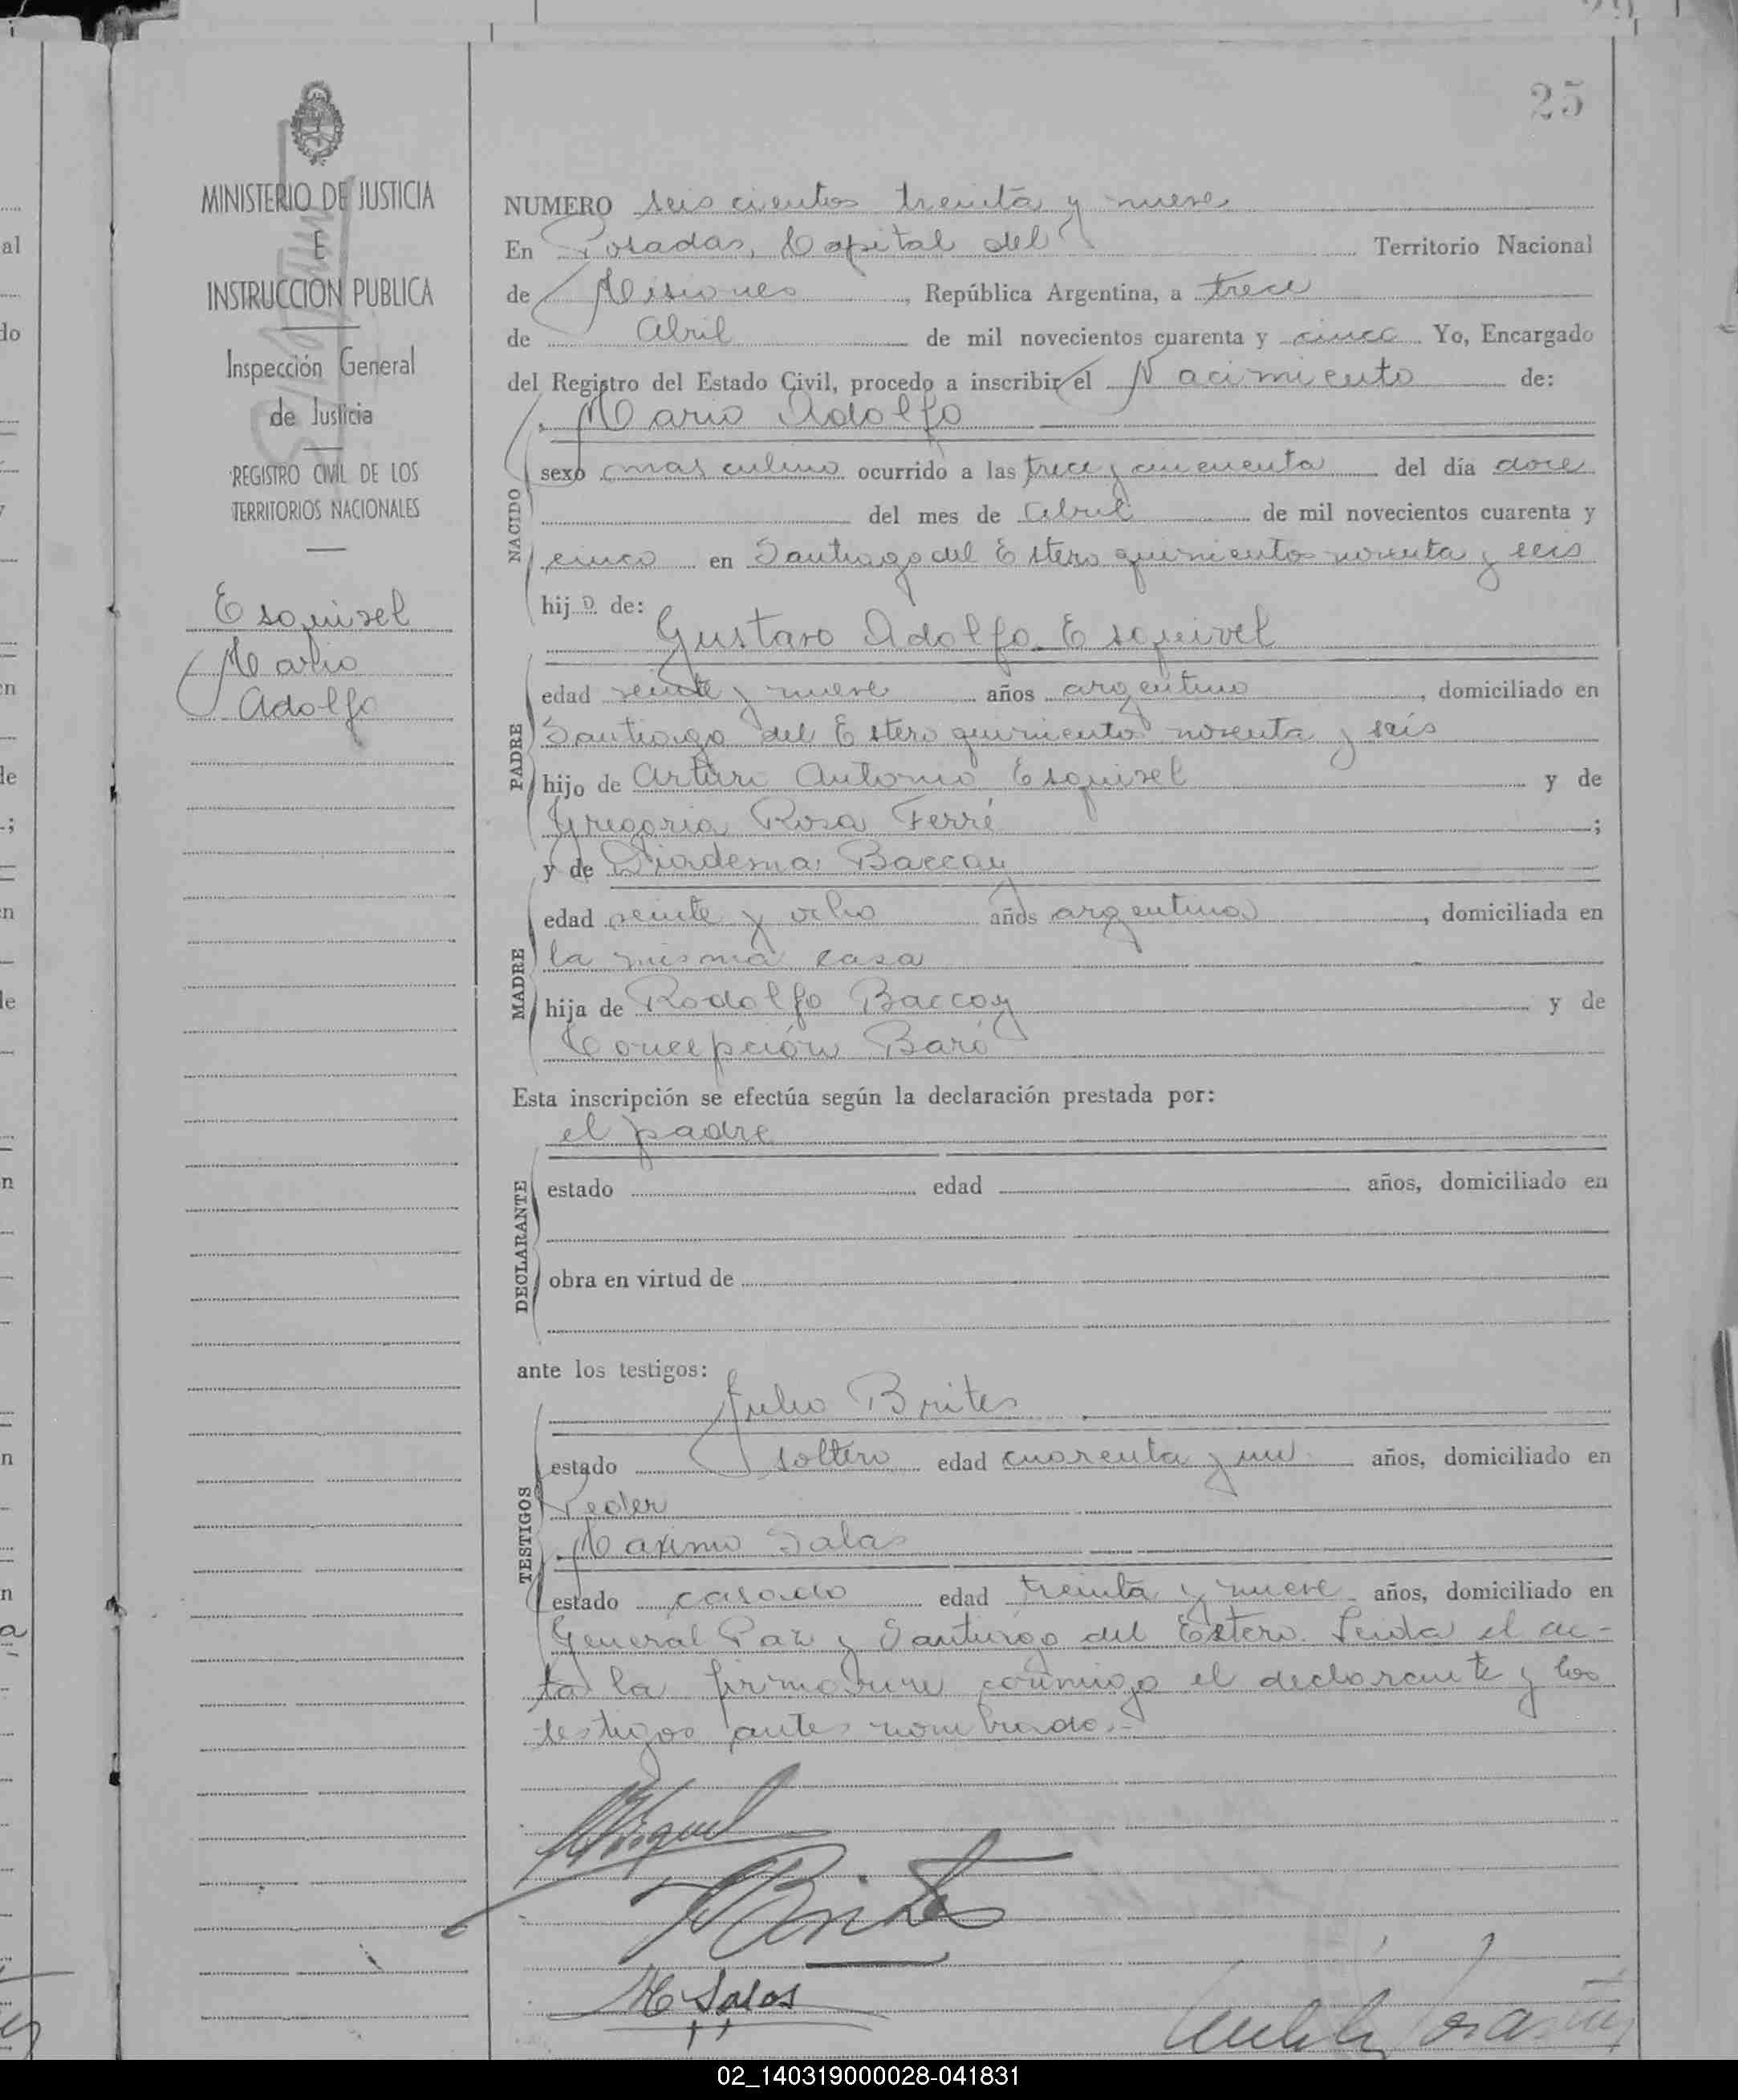 25
MINISTERIO DE JUSTICIA
E
INSTRUCCION PUBLICA
Inspección General
de Justicia
REGISTRO CIVIL DE LOS
TERRITORIOS NACIONALES
Esquivel
Mario
Adolfo
NUMERO seis cientos treinta y nueve
En Posadas, Capital del Territorio Nacional
de Misiones, República Argentina, a trece
de Abril de mil novecientos cuarenta y cinco Yo, Encargado
del Registro del Estado Civil, procedo a inscribir el Nacimiento de:
Mario Adolfo
NACIDO
sexo masculino ocurrido a las trece y cincuenta del día doce
del mes de Abril de mil novecientos cuarenta y
cinco en Santiago del Estero quinientos noventa y seis
hijo de:
Gustavo Adolfo Esquivel
PADRE
edad veinte y nueve años argentino, domiciliado en
Santiago del Estero quinientos noventa y seis
hijo de Arturo Antonio Esquivel y de
Gregoria Rosa Ferré;
y de Diadema Baccay
MADRE
edad veinte y ocho años argentina, domiciliada en
la misma casa
hija de Rodolfo Baccay y de
Concepción Baró
Esta inscripción se efectúa según la declaración prestada por:
el padre
DECLARANTE
estado edad años, domiciliado en
obra en virtud de
ante los testigos:
Julio Brites
TESTIGOS
estado soltero edad cuarenta y un años, domiciliado en
Maximo Salas
estado casado edad treinta y nueve años, domiciliado en
General Paz y Santiago del Estero. Leída el ac-
ta la firmaron conmigo el declarante y los
testigos antes nombrados.-
Brites
M Salas
02_140319000028-041831